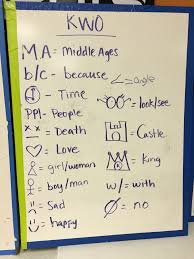 KWO
MA = Middle Ages
b/c - because
∠ = angle
- Time
= look/see
PPl - People
= Death
= Castle
= Love
= girl/woman
= King
= boy/man
w/ = with
= Sad
Ø = no
= happy